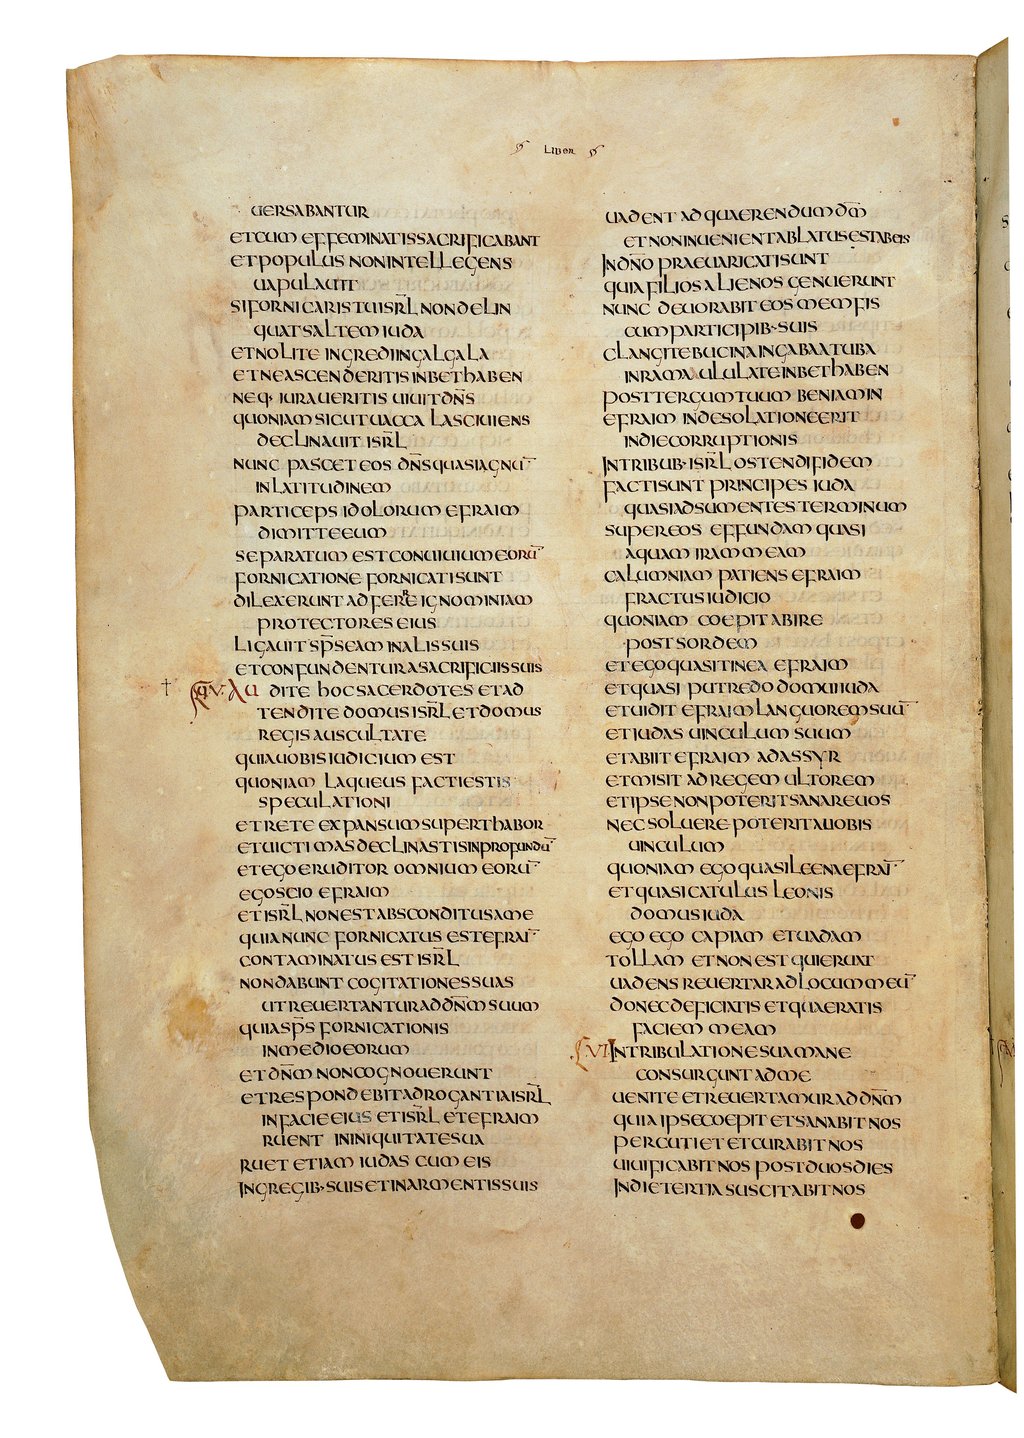 LIBER
UERSABANTUR
ETCUM EFFEMINATIS SACRIFICABANT
ET POPULUS NON INTELLEGENS
UAPULAUIT
SI FORNICARIS TU ISRL̄ NON DELIN
QUAT SALTEM IUDA
ET NOLITE INGREDI IN GALGALA
ET NE ASCENDERITIS IN BETHABEN
NEQ· IURAUERITIS UIUIT DN̄S
QUONIAM SICUT UACCA LASCIUIENS
DECLINAUIT ISRL̄
NUNC PASCET EOS DN̄S QUASI AGNŪ
IN LATITUDINEM
PARTICEPS IDOLORUM EFRAIM
DIMITTE EUM
SEPARATUM EST CONUIUIUM EORŪ
FORNICATIONE FORNICATI SUNT
DILEXERUNT ADFERRE IGNOMINIAM
PROTECTORES EIUS
LIGAUIT SP̄S EAM IN ALIS SUIS
ET CONFUNDENTUR A SACRIFICIIS SUIS
U· AUDITE HOC SACERDOTES ET AD
TENDITE DOMUS ISRL̄ ET DOMUS
REGIS AUSCULTATE
QUIA UOBIS IUDICIUM EST
QUONIAM LAQUEUS FACTI ESTIS
SPECULATIONI
ET RETE EXPANSUM SUPER THABOR
ET UICTIMAS DECLINASTIS IN PROFUNDŪ
ET EGO ERUDITOR OMNIUM EORŪ
EGO SCIO EFRAIM
ET ISRL̄ NON EST ABSCONDITUS A ME
QUIA NUNC FORNICATUS EST EFRAĪ
CONTAMINATUS EST ISRL̄
NON DABUNT COGITATIONES SUAS
UT REUERTANTUR AD DN̄M SUUM
QUIA SP̄S FORNICATIONIS
IN MEDIO EORUM
ET DN̄M NON COGNOUERUNT
ET RESPONDEBIT ADROGANTIA ISRL̄
IN FACIE EIUS ET ISRL̄ ET EFRAIM
RUENT IN INIQUITATE SUA
RUET ETIAM IUDAS CUM EIS
IN GREGIB· SUIS ET IN ARMENTIS SUIS
UADENT AD QUAERENDUM DN̄M
ET NON INUENIENT ABLATUS EST AB EIS
IN DN̄O PRAEUARICATI SUNT
QUIA FILIOS ALIENOS GENUERUNT
NUNC DEUORABIT EOS MEMFIS
CUM PARTICIPIB· SUIS
CLANGITE BUCINA IN GABAA TUBA
IN RAMA ULULATE IN BETHABEN
POST TERGUM TUUM BENIAMIN
EFRAIM IN DESOLATIONE ERIT
IN DIE CORRUPTIONIS
IN TRIBUB· ISRL̄ OSTENDI FIDEM
FACTI SUNT PRINCIPES IUDA
QUASI ADSUMENTES TERMINUM
SUPER EOS EFFUNDAM QUASI
AQUAM IRAM MEAM
CALUMNIAM PATIENS EFRAIM
FRACTUS IUDICIO
QUONIAM COEPIT ABIRE
POST SORDEM
ET EGO QUASI TINEA EFRAIM
ET QUASI PUTREDO DOMUI IUDA
ET UIDIT EFRAIM LANGUOREM SUŪ
ET IUDAS UINCULUM SUUM
ET ABIIT EFRAIM AD ASSYR
ET MISIT AD REGEM ULTOREM
ET IPSE NON POTERIT SANARE UOS
NEC SOLUERE POTERIT A UOBIS
UINCULUM
QUONIAM EGO QUASI LEENA EFRAĪ
ET QUASI CATULUS LEONIS
DOMUS IUDA
EGO EGO CAPIAM ET UADAM
TOLLAM ET NON EST QUI ERUAT
UADENS REUERTAR AD LOCUM MEŪ
DONEC DEFICIATIS ET QUAERATIS
FACIEM MEAM
VI IN TRIBULATIONE SUA MANE
CONSURGUNT AD ME
UENITE ET REUERTAMUR AD DN̄M
QUIA IPSE COEPIT ET SANABIT NOS
PERCUTIET ET CURABIT NOS
UIUIFICABIT NOS POST DUOS DIES
IN DIE TERTIA SUSCITABIT NOS